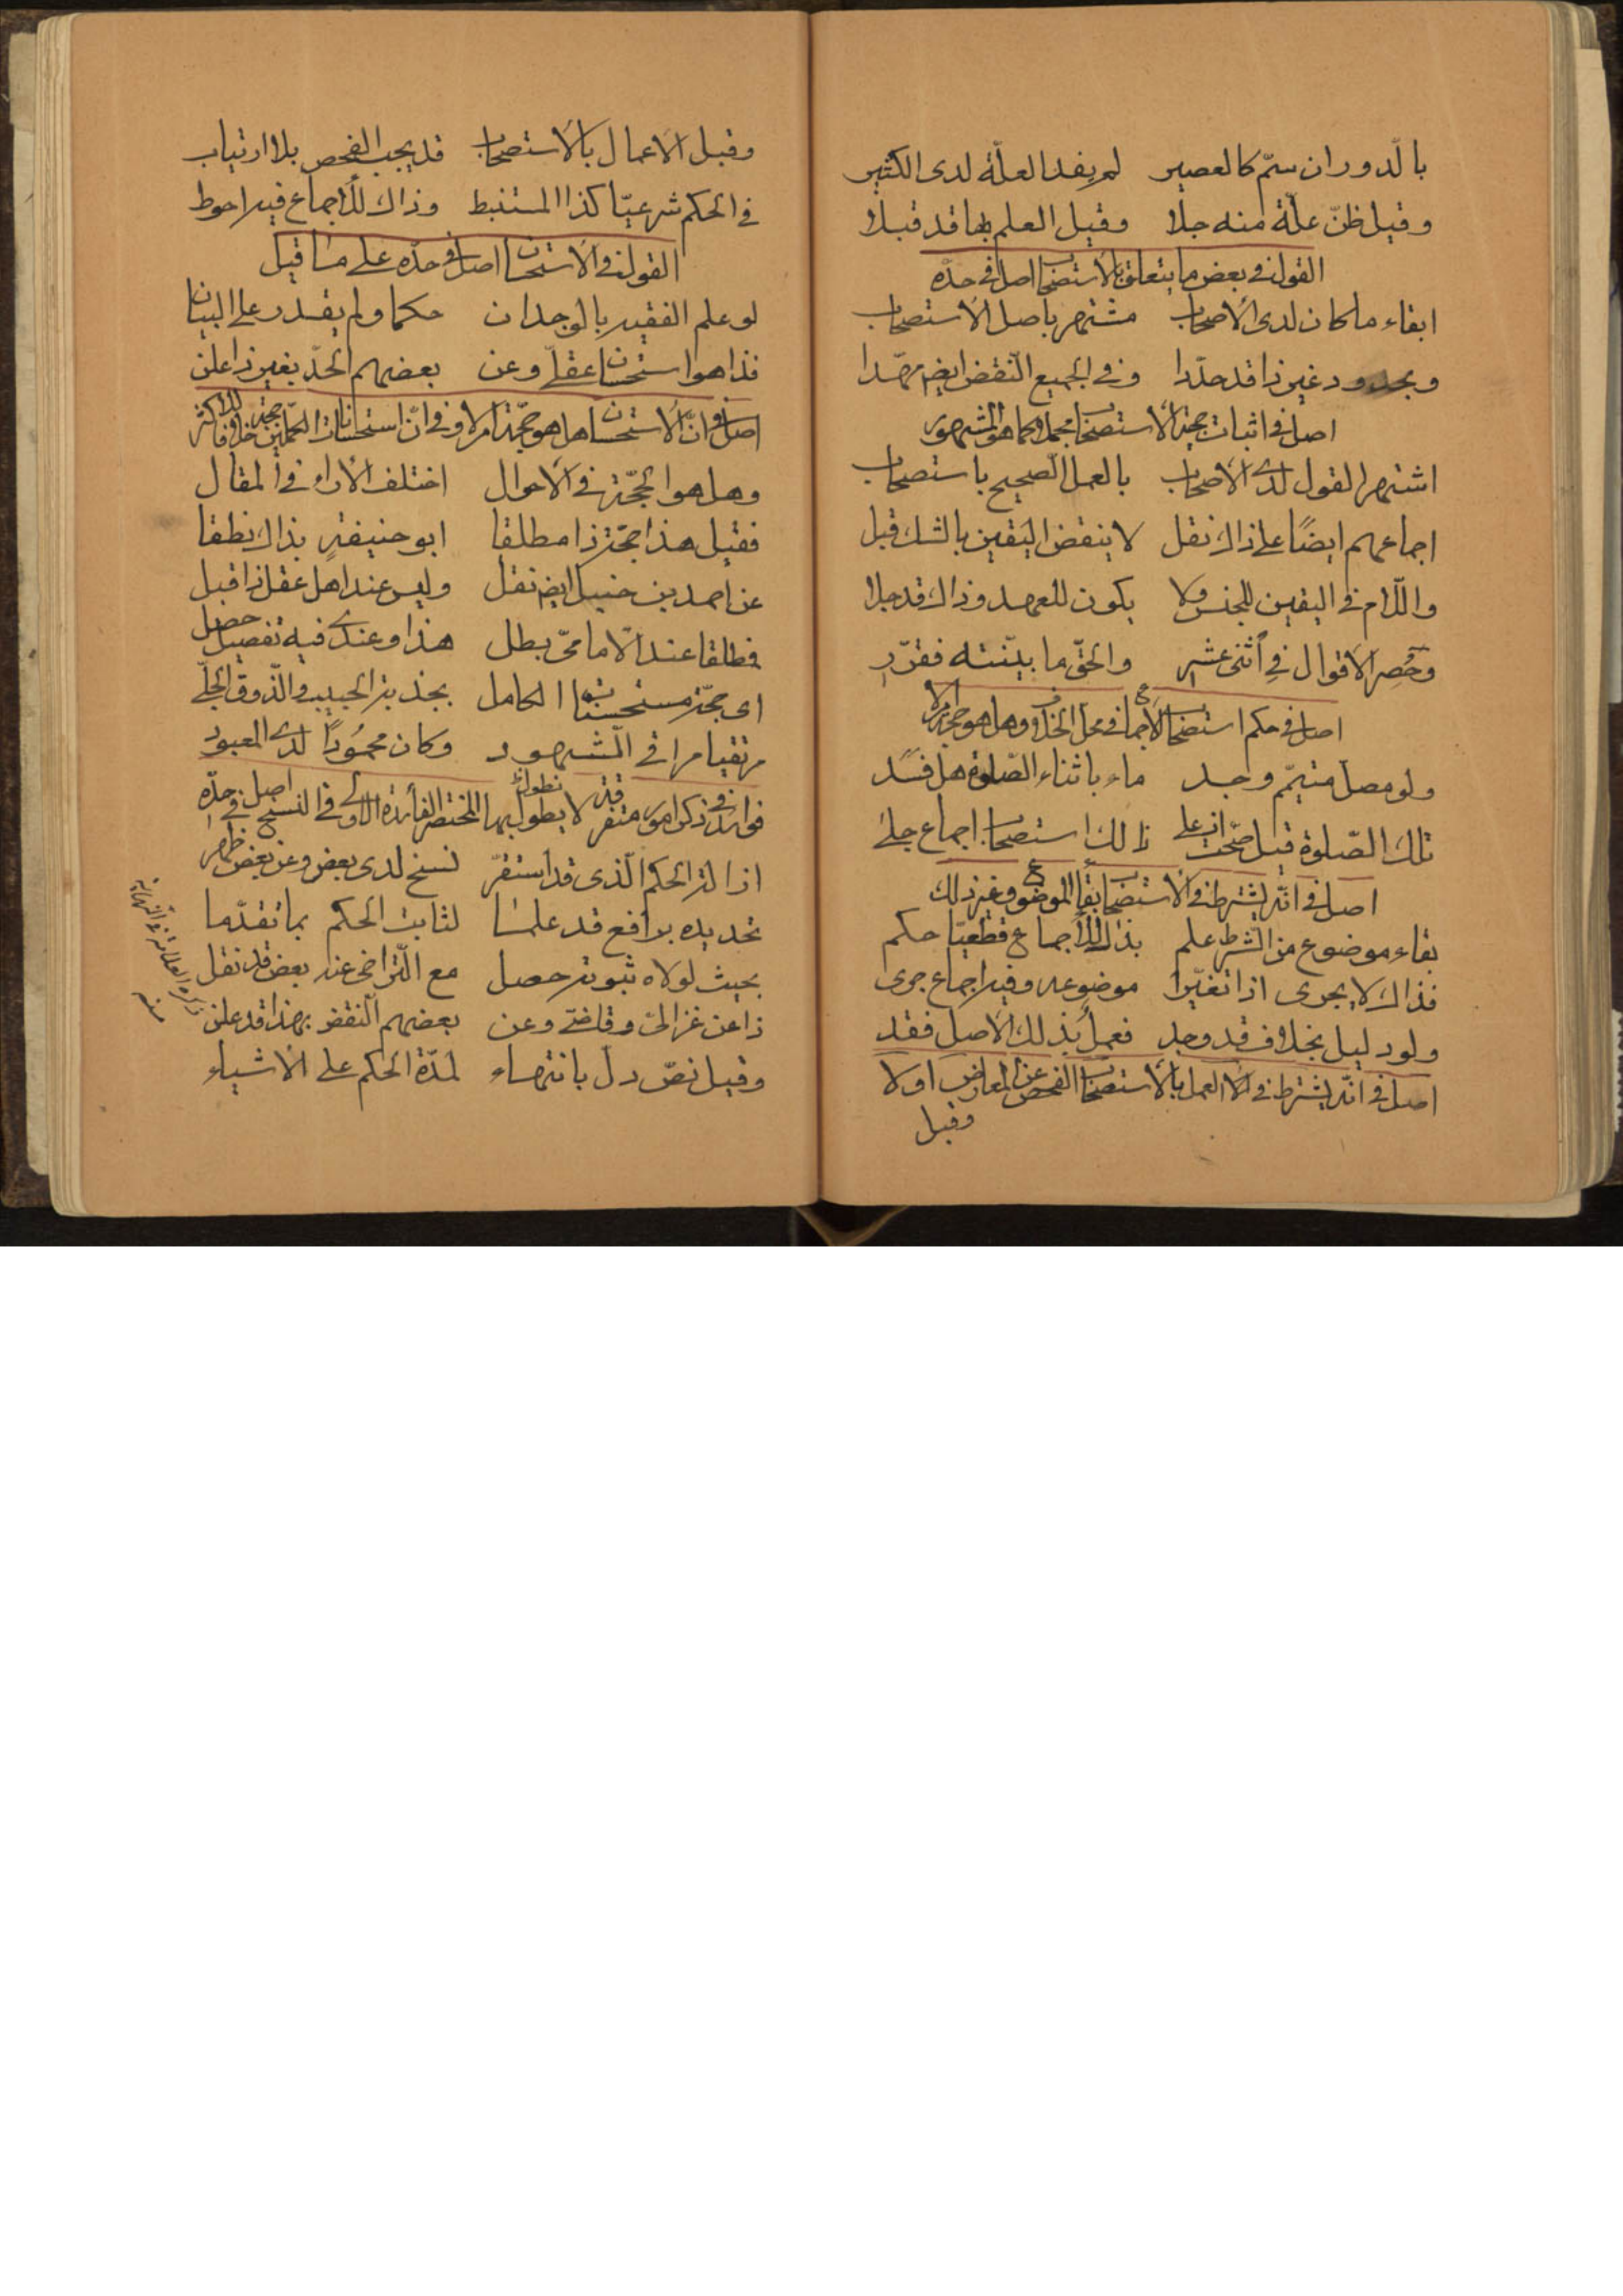 بالدوران سمّ كالعصير لم يفد العلّة لدى الكثير
وقيل ظنّ علّة منه جلا وقيل العلم بها قد قبلا
القول في بعض ما يتعلق بالاستصحاب اصل في حدّه
ابقاء ما كان لدى الأصحاب مشتهر باصل الاستصحاب
وبحدود غير ذا قد حدّدا وفي الجميع النّقض ايضم مهّدا
اصل في اثبات حجية الاستصحاب مجملا كما هو المشهور
اشتهر القول لدى الاصحاب بالعمل الصّحيح باستصحاب
اجماعهم ايضًا على ذاك نقل لا ينقض اليقين بالشك قبل
واللّام في اليقين للجنس ولا يكون للعهد وذاك قد جلا
وحُصِر الاقوال في اثنى عشر والحقّ ما بيّنته فقرّر
اصل في حكم استصحاب الاجماع في محل الخلاف وهل هو حجة ام لا
ولو مصل متيمّم وجد ماء باثناء الصّلوة هل فسد
تلك الصّلوة قبل صحّت على ذلك استصحاب اجماع جلى
اصل في انّه يشترط في الاستصحاب بقاء الموضوع وغير ذلك
بقاء موضوع من الشرط علم بذلك للأجماع قطعيّا حكم
فذاك لا يجرى اذا تغيّرا موضوعه وفيه اجماع جرى
ولو دليل بخلاف قد وجد فعمل بذلك الاصل فقد
اصل في انّه يشترط في العمل بالاستصحاب الفحص عن المعارض او لا
وقبل
وقبل الاعمال بالاستصحاب قد يجب الفحص بلا ارتياب
في الحكم شرعيّا كذا المستنبط وذاك للأجماع فيه احوط
القول في الاستحسان اصل في حدّه على ما قيل
لو علم الفقيه بالوجدان حكما ولم يقدر على البيان
فذا هو استحسان عقلّ وعن بعضهم الحدّ بغير ذا علن
اصل في انّ الاستحسان هل هو حجّة ام لا وفي انّ استحسانات الكمّلين حجة خلافا للاكثر
وهل هو الحجّة في الاحوال اختلف الآراء في المقال
فقيل هذا حجّة ذا مطلقا ابو حنيفة بذاك نطقا
عن احمد بن حنبل ايضم نقل وليس عند اهل عقل ذا قبل
مطلقا عند الامامىّ بطل هذا وعندى فيه تفصيل حصل
اى حجّة مستحسنات الكامل بجذبة الحبيب والذّوق الجلّى
مرتقيا مراقى الشّهود وكان محمُودًا لدى المعبود
فوائد في ذكر امور متفرقة لا يطول بها المختصر الفائدة الاولى في النسخ اصل في حدّه
ازالة الحكم الّذى قد استقرّ نسخ لدى بعض وعن بعض ظهر
تحديده برافع قد علما لثابت الحكم بما تقدّما
بحيث لولاه ثبوته حصل مع التّراخى عنه بعض قد نقل
ذا عن غزالىّ وقاضى وعن بعضهم النّقض بهذا قد علن
وقيل نصّ دلّ بانتهاء لمدّة الحكم على الاشياء
ذكره العلامة في النهاية
منه